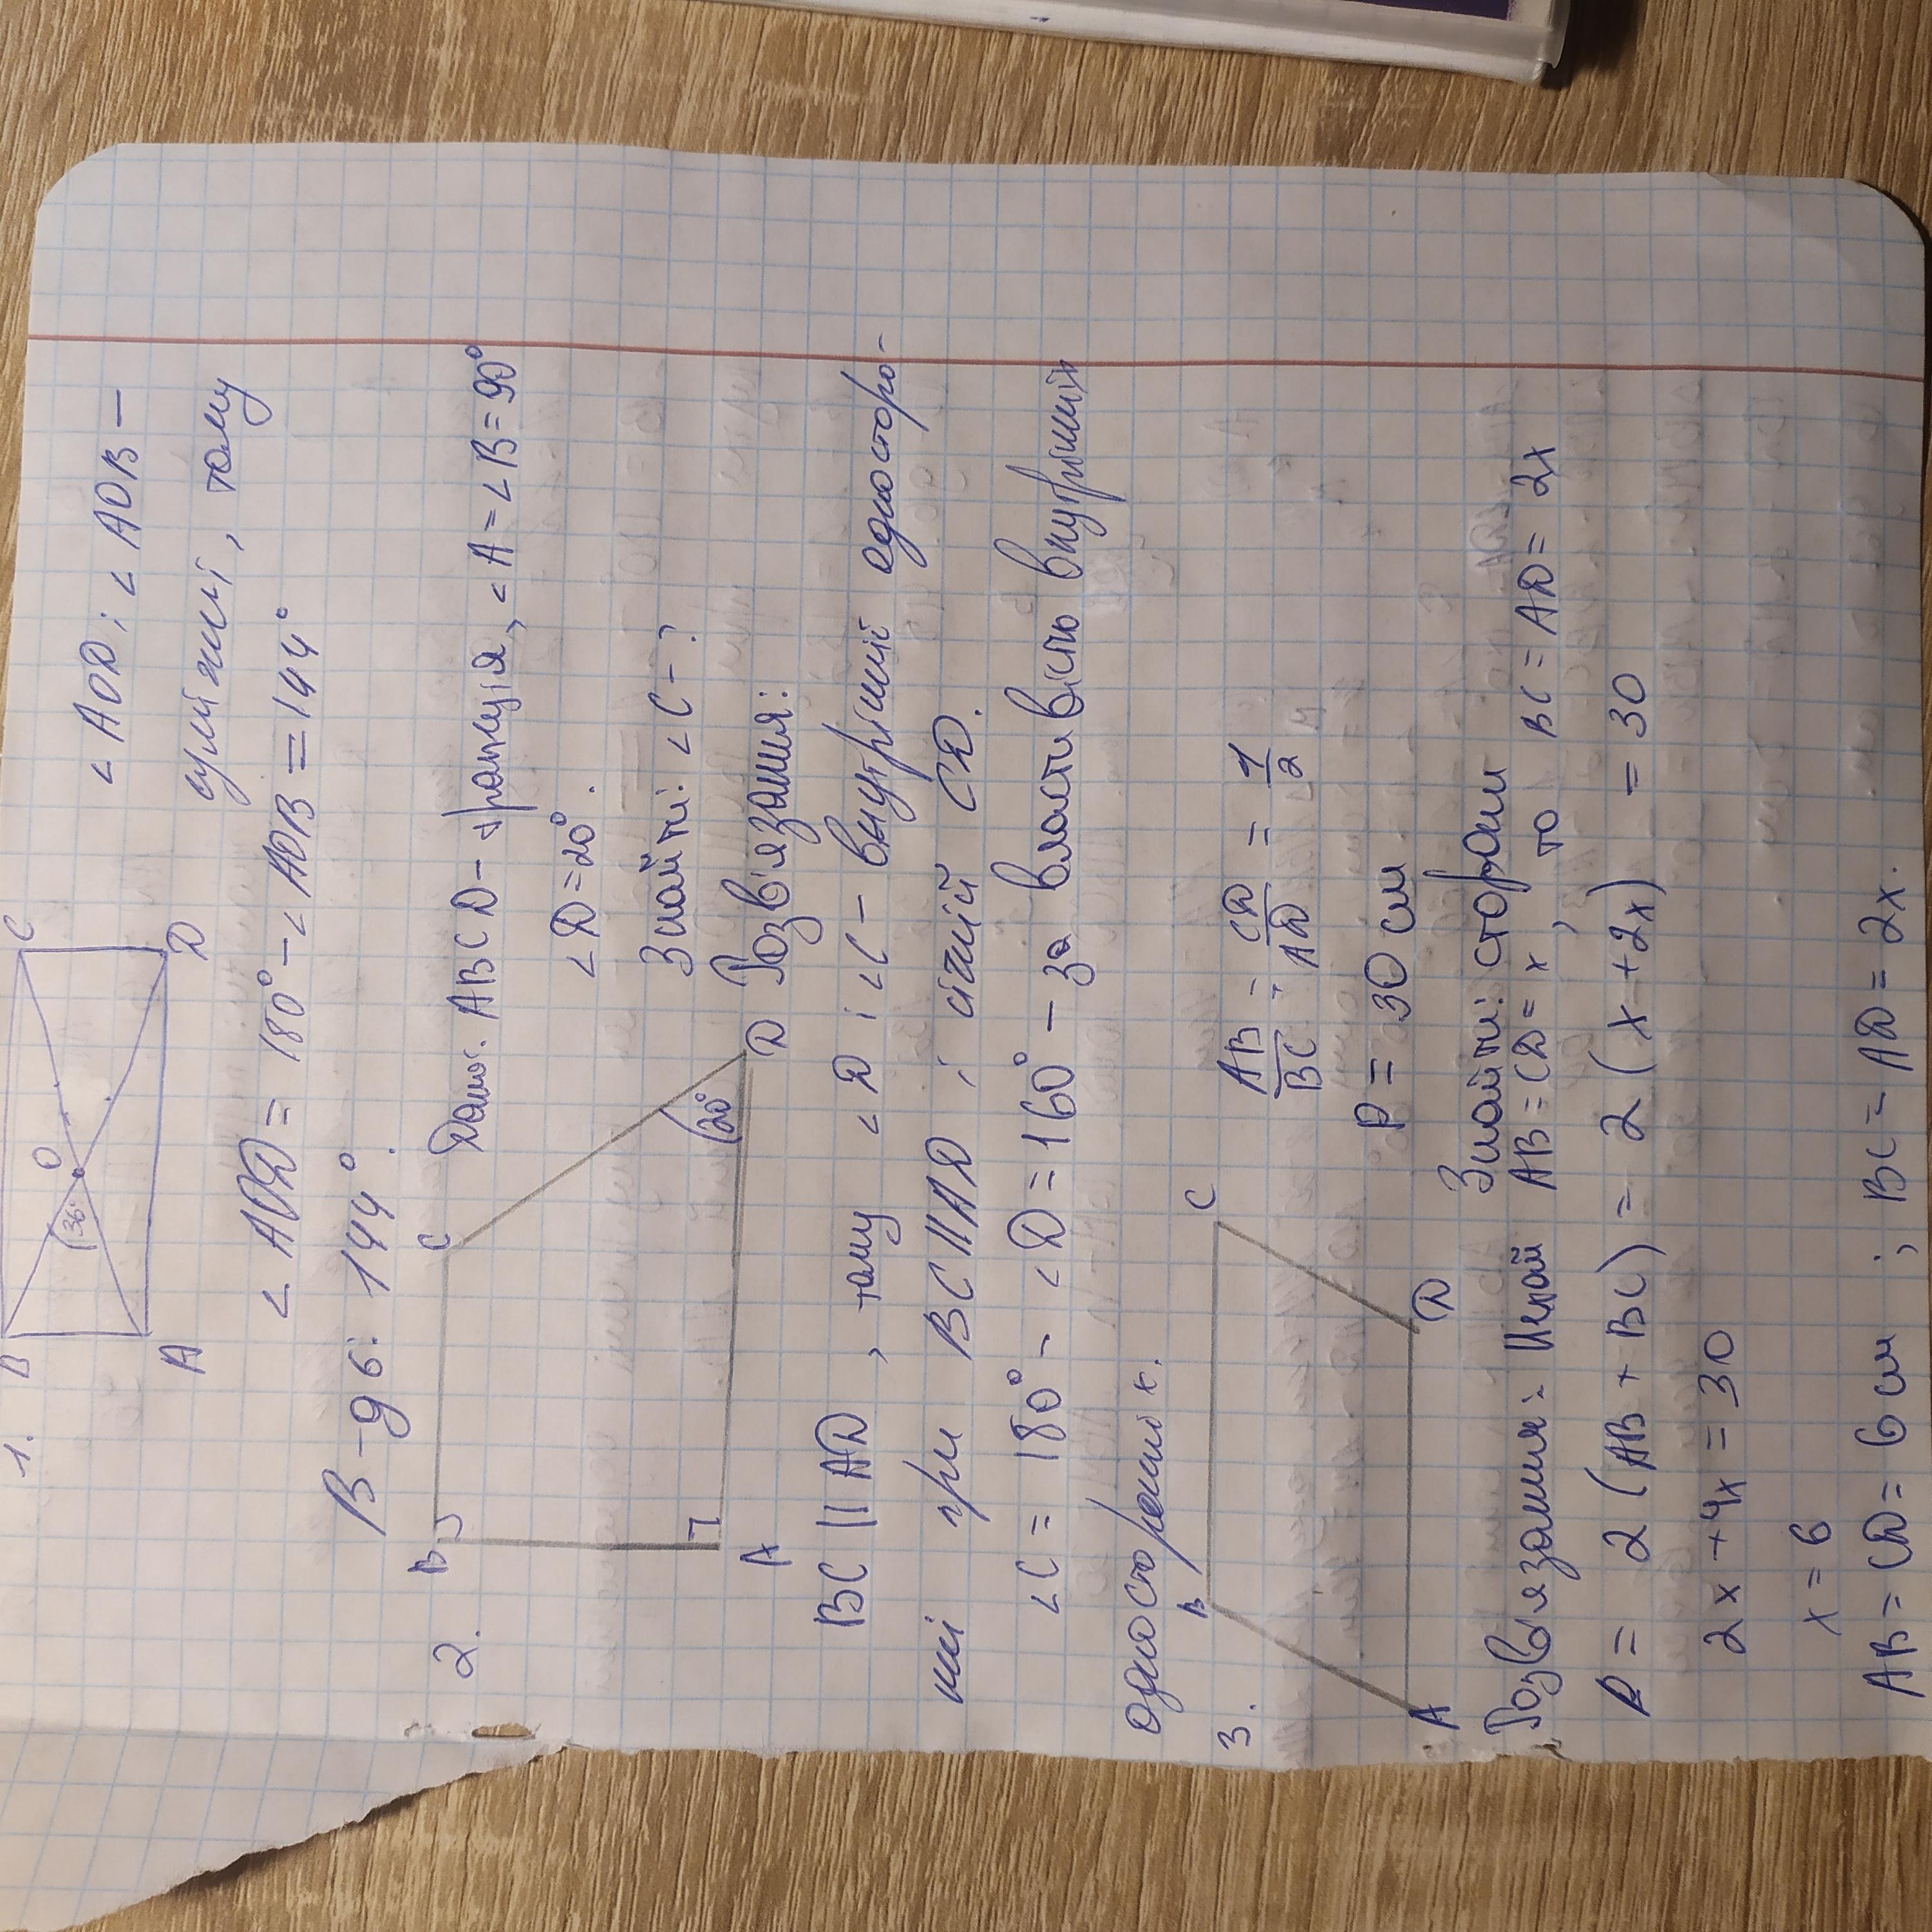 1.
B
C
O
36°
A
D
∠AOD i ∠AOB -
суміжні, тому
∠AOD = 180° - ∠AOB = 144°
В-дб: 144°.
2.
B
C
A
D
20°
Дано: ABCD - трапеція, ∠A = ∠B = 90°
∠D = 20°.
Знайти: ∠C - ?
Розв'язання:
BC || AD, тому ∠D i ∠C - внутрішні односторо-
нні при BC || AD i січній CD.
∠C = 180° - ∠D = 160° - за властивістю внутрішніх
односторонніх.
3.
B
C
A
D
AB/BC = CD/AD = 1/2
P = 30 см
Знайти: сторони
Розв'язання: Нехай AB = CD = x, то BC = AD = 2x
P = 2(AB + BC) = 2(x + 2x) = 30
2x + 4x = 30
x = 6
AB = CD = 6 см; BC = AD = 2x.